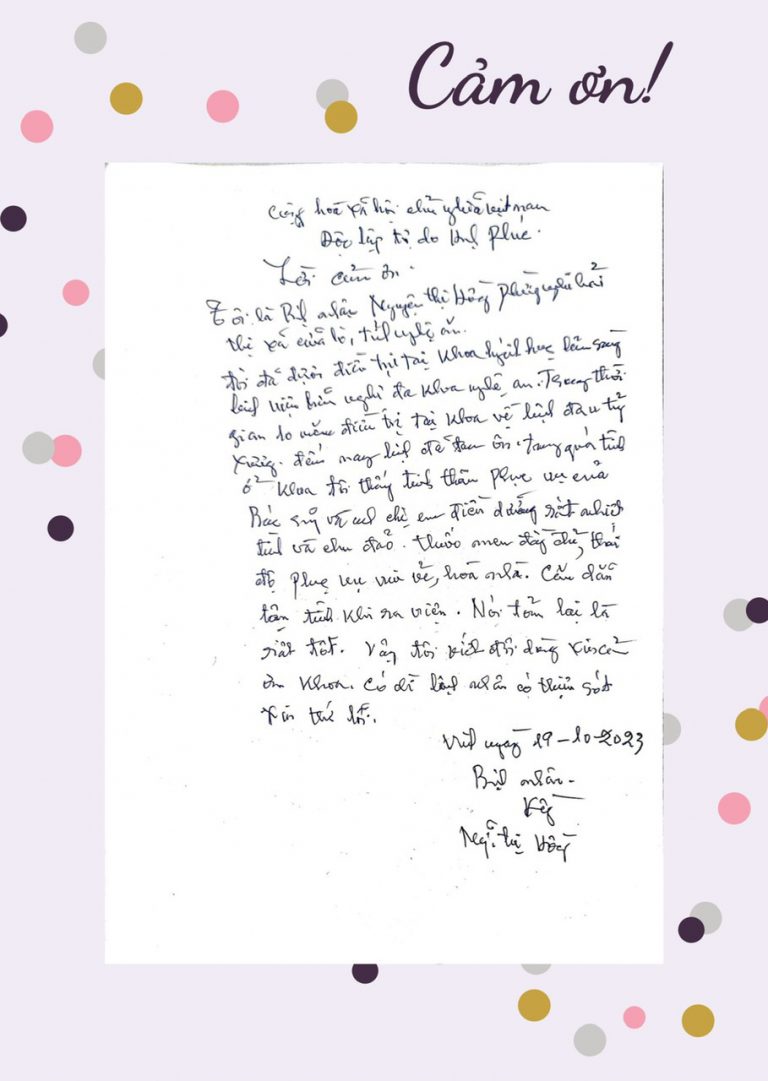 Cảm ơn!
Cộng hoà xã hội chủ nghĩa việt nam
Độc lập tự do Hạnh Phúc.
Lời cảm ơn.
Tôi là Bệnh nhân Nguyễn thị Hồng Phường nghi hải
thị xã cửa lò, tỉnh nghệ an.
tôi đã được điều trị tại Khoa huyết học lâm sàng
bệnh viện hữu nghị đa khoa nghệ an. Trong thời
gian 10 năm điều trị tại Khoa về bệnh đau tuỷ
xương. đến nay bệnh đã ổn. trong quá trình
ở Khoa tôi thấy tinh thần phục vụ của
Bác sỹ và anh chị em điều dưỡng rất nhiệt
tình và chu đáo. thuốc men đầy đủ, thái
độ phục vụ vui vẻ, hoà nhã. Căn dặn
tận tình khi ra viện. Nói tóm lại là
rất tốt. Vậy tôi viết đôi dòng xin cảm
ơn Khoa. Có gì bệnh nhân có thiếu sót
xin thứ lỗi.
Vinh ngày 19-10-2023
Bệnh nhân.
Ký
Ng. thị Hồng